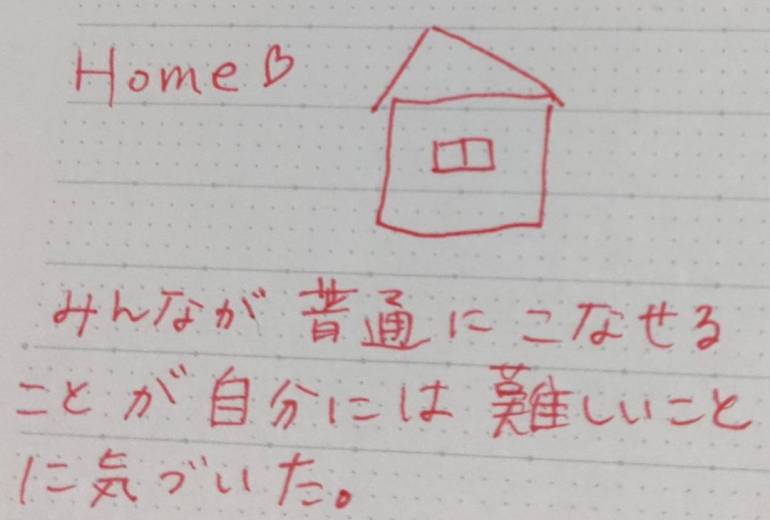 Home♡
みんなが普通にこなせる
ことが自分には難しいこと
に気づいた。